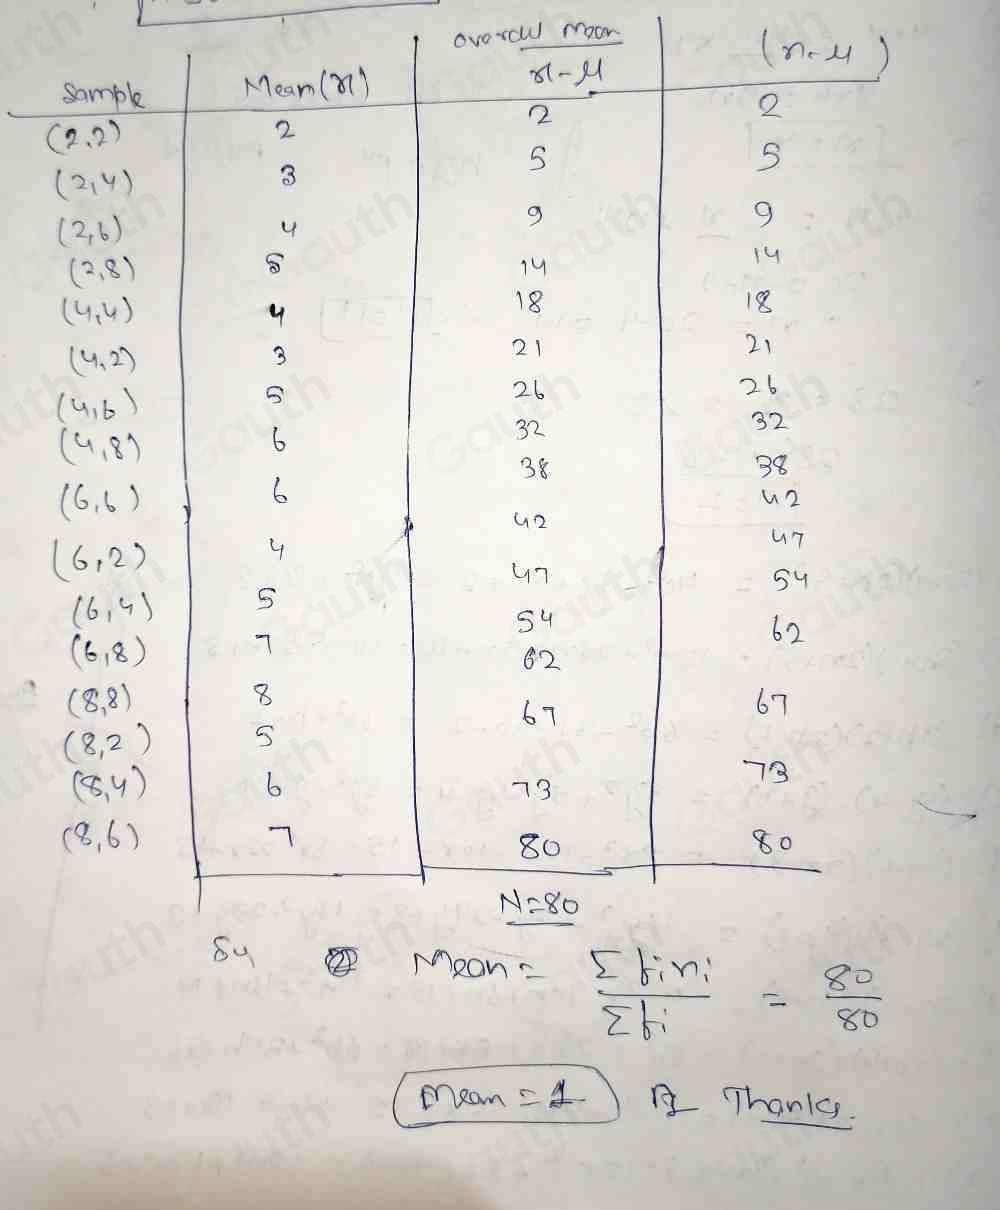 overall mean
Sample Mean(x) x-μ (x-μ)
(2,2) 2 2 2
(2,4) 3 5 5
(2,6) 4 9 9
(2,8) 5 14 14
(4,4) 4 18 18
(4,2) 3 21 21
(4,6) 5 26 26
(4,8) 6 32 32
(6,6) 6 38 38
(6,2) 4 42 42
(6,4) 5 47 47
(6,8) 7 54 54
(8,8) 8 62 62
(8,2) 5 67 67
(8,4) 6 73 73
(8,6) 7 80 80
N=80
54 Mean = Σfixi / Σfi = 80/80
Mean = 1 Thanks.